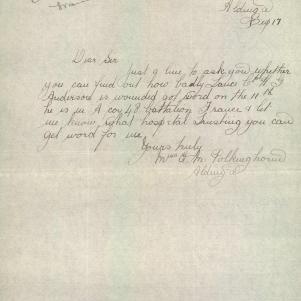 Aldinga
Sep 17
Dear Sir
Just a line to ask you whether
you can find out how badly Lance
Anderson is wounded got word on the 11th
he is in A coy 48 battalion France & let
me know what hospital Trusting you can
get word for me
Yours truly
Mrs M. Polkinghorne
Aldinga